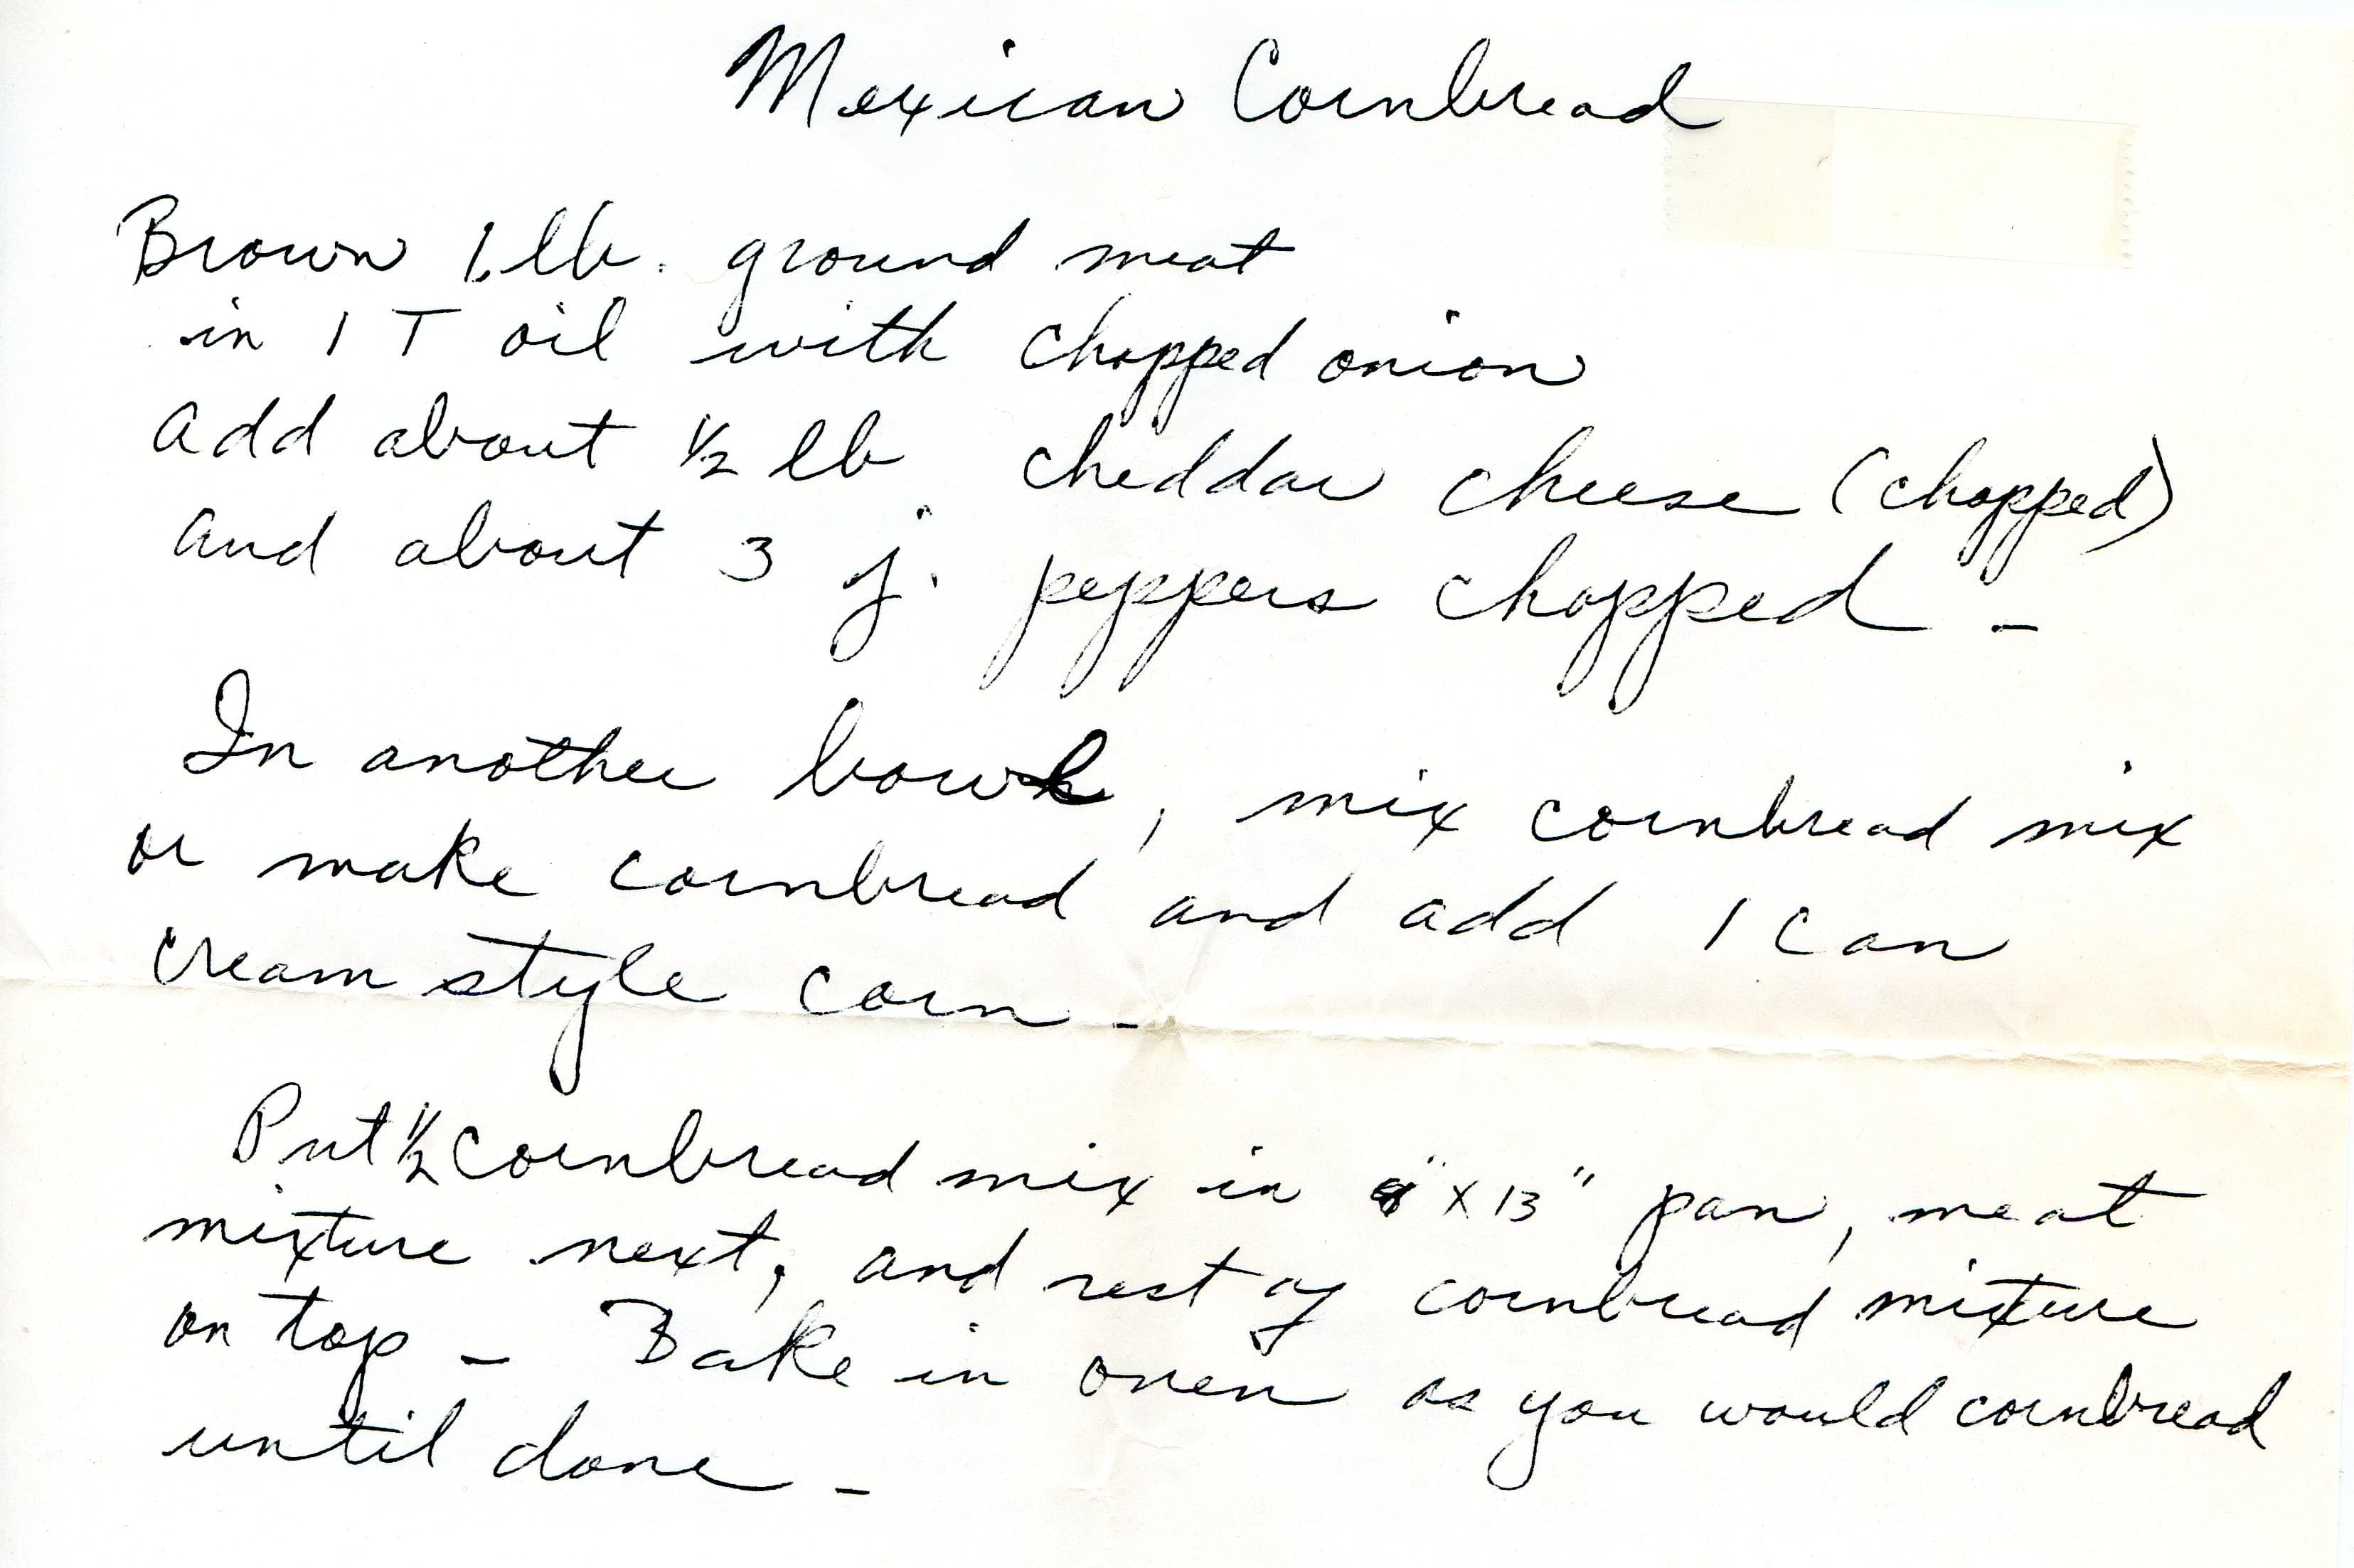 Mexican Cornbread
Brown 1 lb. ground meat
in 1 T oil with chopped onion
add about ½ lb cheddar cheese (chopped)
and about 3 j. peppers chopped –
In another bowl, mix cornbread mix
or make cornbread and add 1 can
cream style corn –
Put ½ cornbread mix in 9" x 13" pan, meat
mixture next, and rest of cornbread mixture
on top – Bake in oven as you would cornbread
until done –